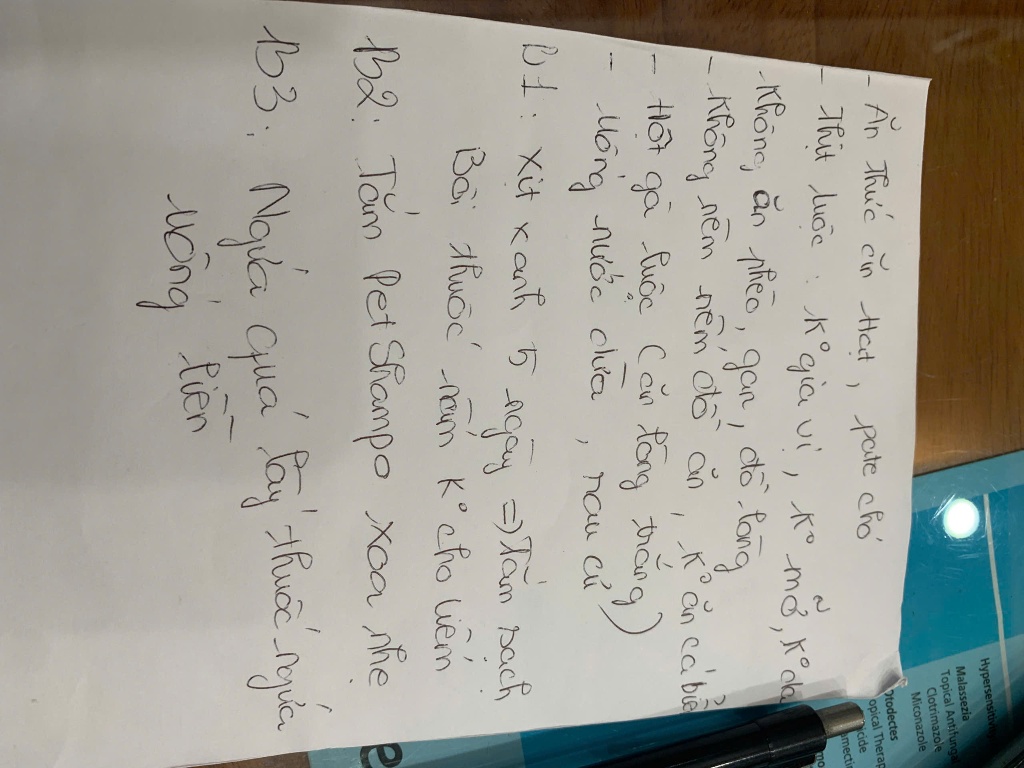 - Ăn Thức ăn Hạt, pate chó
- Thịt luộc : K° gia vị, K° mỡ, K° da
- Không ăn phèo, gan, đồ lòng
- Không nêm nếm đồ ăn, K° ăn cá biển
- Hột gà luộc (ăn lòng trắng)
- Uống nước dừa, rau củ
B1: Xịt xanh 5 ngày => Tắm sạch
Bôi thuốc nấm K° cho liếm
B2: Tắm Pet Shampo xoa nhẹ
B3: Ngứa quá lấy thuốc ngứa
uống liền
Hypersensitivity
Malassezia
Topical Antifungal
Clotrimazole
Miconazole